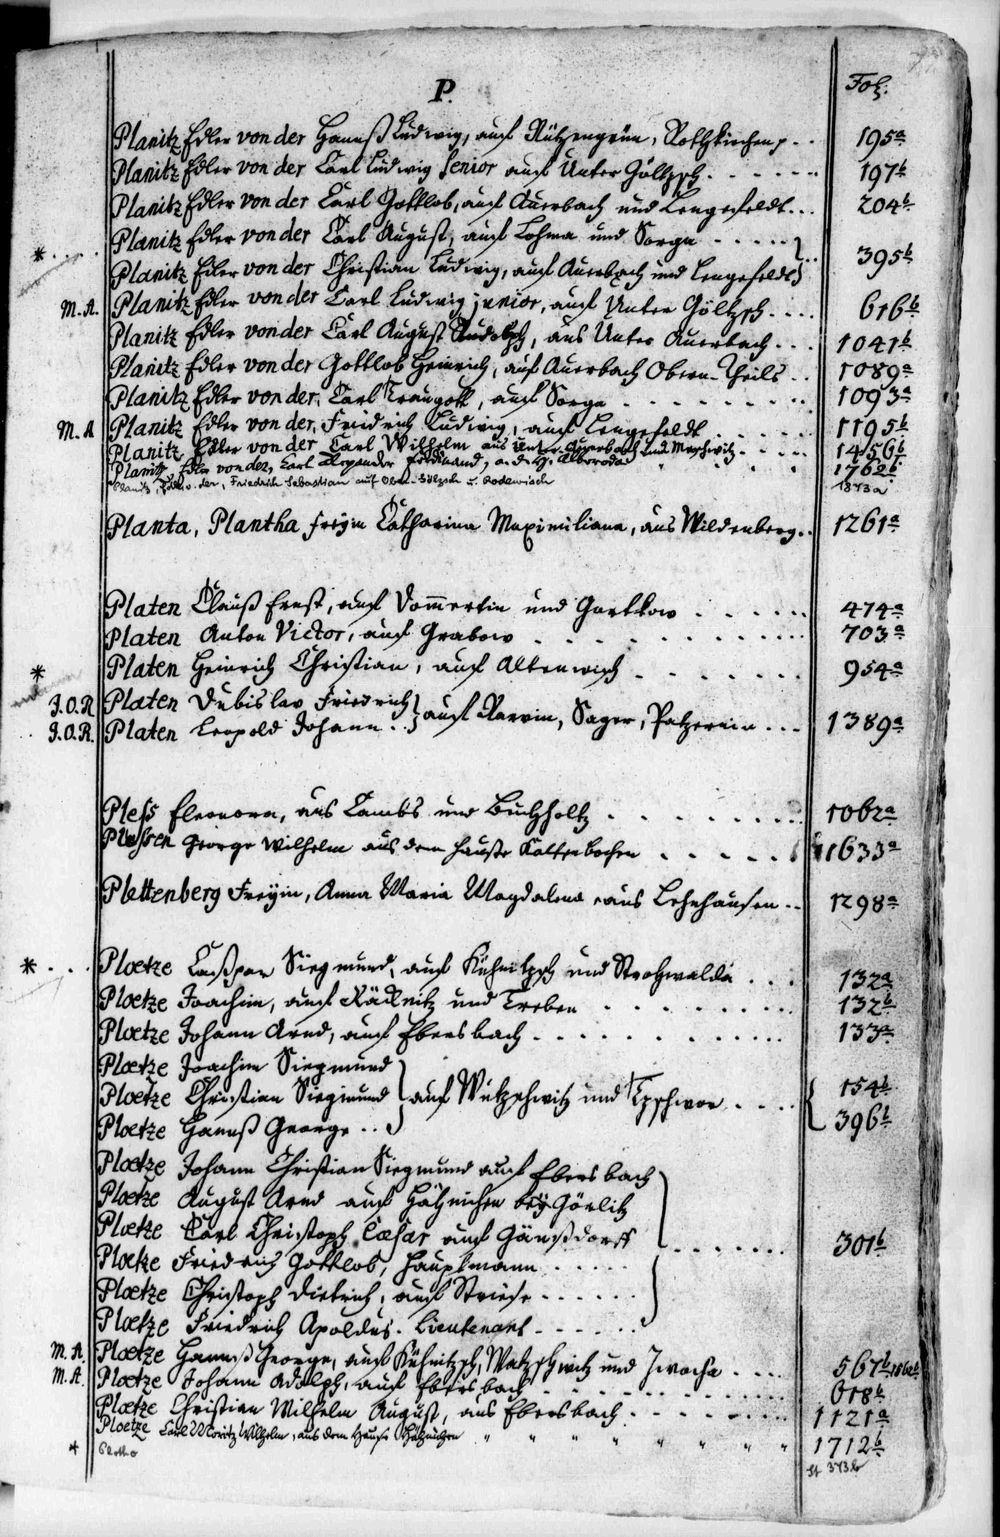 P.
Fol.
Planitz Edler von der Hannß Ludwig, auf Rützengrün, Rothkirchen p. . . 195a
Planitz Edler von der Carl Ludwig Senior auf Unter Göltzsch . . . . . . 197b
Planitz Edler von der Carl Gottlob, auf Auerbach und Lengefeldt . . . 204b
* . . . . Planitz Edler von der Carl August, auf Lohma und Sorga . . . . . }
Planitz Edler von der Christian Ludwig, auf Auerbach und Lengefeldt } . . 395b
M.A. Planitz Edler von der Carl Ludwig junior, auf Unter Göltzsch . . . . 616b
Planitz Edler von der Carl August Rudolph, aus Unter Auerbach . . . 1041b
Planitz Edler von der Gottlob Heinrich, auf Auerbach Obern-Theils . . 1089a
Planitz Edler von der, Carl Traugott, auf Sorga . . . . . . . . 1093a
M.A Planitz Edler von der, Friedrich Ludwig, auf Lengefeldt . . . . . . 1195b
Planitz Edler von der Carl Wilhelm aus Unter-Auerbach und . . . . . 1456b
Planitz, Edler von der, Carl Alexander Ferdinand, a. d. H. 1762b
Planitz, Edl. v. der, Friedrich Sebastian auf Ober-Gölzsch u. Rodewisch 1873a
Planta, Plantha freyin Catharina Maximiliana, aus Wildenberg . . 1261a
Platen Clauß Ernst, auf und Gartkow . . . . . . 474a
Platen Anton Victor, auf Grabow . . . . . . . . . . . 703a
* Platen Heinrich Christian, auf Altenwisch . . . . . . . 954a
J.O.R. Platen Dubislav Friedrich }
J.O.R. Platen Leopold Johann . . } auf Parvin, Sager, Patzerwin . . . 1389a
Pless Eleonora, aus Cambs und Buchholtz . . . . . . . . 1062a
Plessen George Wilhelm aus dem Hauße . . . . . . 1633a
Plettenberg Freyin, Anna Maria Magdalena, aus Lehnhausen . . 1298a
* . . . Ploetze Caspar Siegmund, auf Kühnitzsch und Strohwalda . . . 132a
Ploetze Joachim, auf Räcknitz und Treben . . . . . . . . 132b
Ploetze Johann Arnd, auf Ebersbach . . . . . . . . . . 133a
Ploetze Joachim Siegmund }
Ploetze Christian Siegmund } auf Watzschwitz und . . . . { 154b
Ploetze Hannß George . . } 396b
Ploetze Johann Christian Siegmund auf Ebersbach
Ploetze August Arnd auf bey Görlitz
Ploetze Carl Christoph Cæsar auf Gänßdorff
Ploetze Friedrich Gottlob, Hauptmann . . . . . } . . . . . . . 301b
Ploetze Christoph Dietrich, auf Striese . . . . . .
Ploetze Friedrich Apoldus. Lieutenant . . . . . .
M.A. Ploetze Hannß George, auf Kühnitzsch, Watzschwitz und Zwocha . . . . 567b
M.A. Ploetze Johann Adolph, auf Ebersbach . . . . . . . . . . 618b
Ploetze Christian Wilhelm August, aus Ebersbach . . . . . . . . 1121a
Ploetze Carl Moritz Wilhelm, aus dem Hause " " " " " " " 1712b
* Plotho 373b